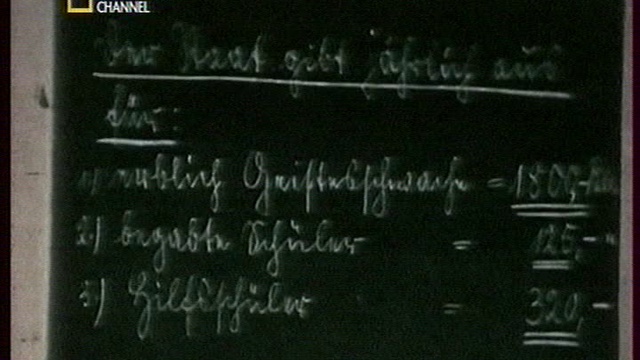 CHANNEL
Der Staat gibt jährlich aus
für:
1) erblich Geistesschwache = 1800,-
2) begabte Schüler = 125,- "
3) Hilfsschüler = 320,-